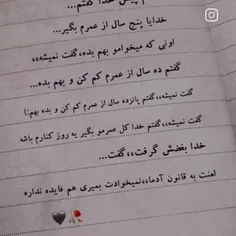 پیش خدا گفتم...
خدایا پنج سال از عمرم بگیر...
اونی که میخوامو بهم بده،گفت نمیشه،،
گفتم ده سال از عمرم کم کن و بهم بده...
گفت نمیشه،،گفتم پانزده سال از عمرم کم کن و بده بهم:)
گفت نمیشه،،گفتم خدا کل عمرمو بگیر یه روز کنارم باشه
خدا بغضش گرفت،،گفت...
لعنت به قانون آدما،،نمیخوادت بمیری هم فایده نداره
🖤🥀